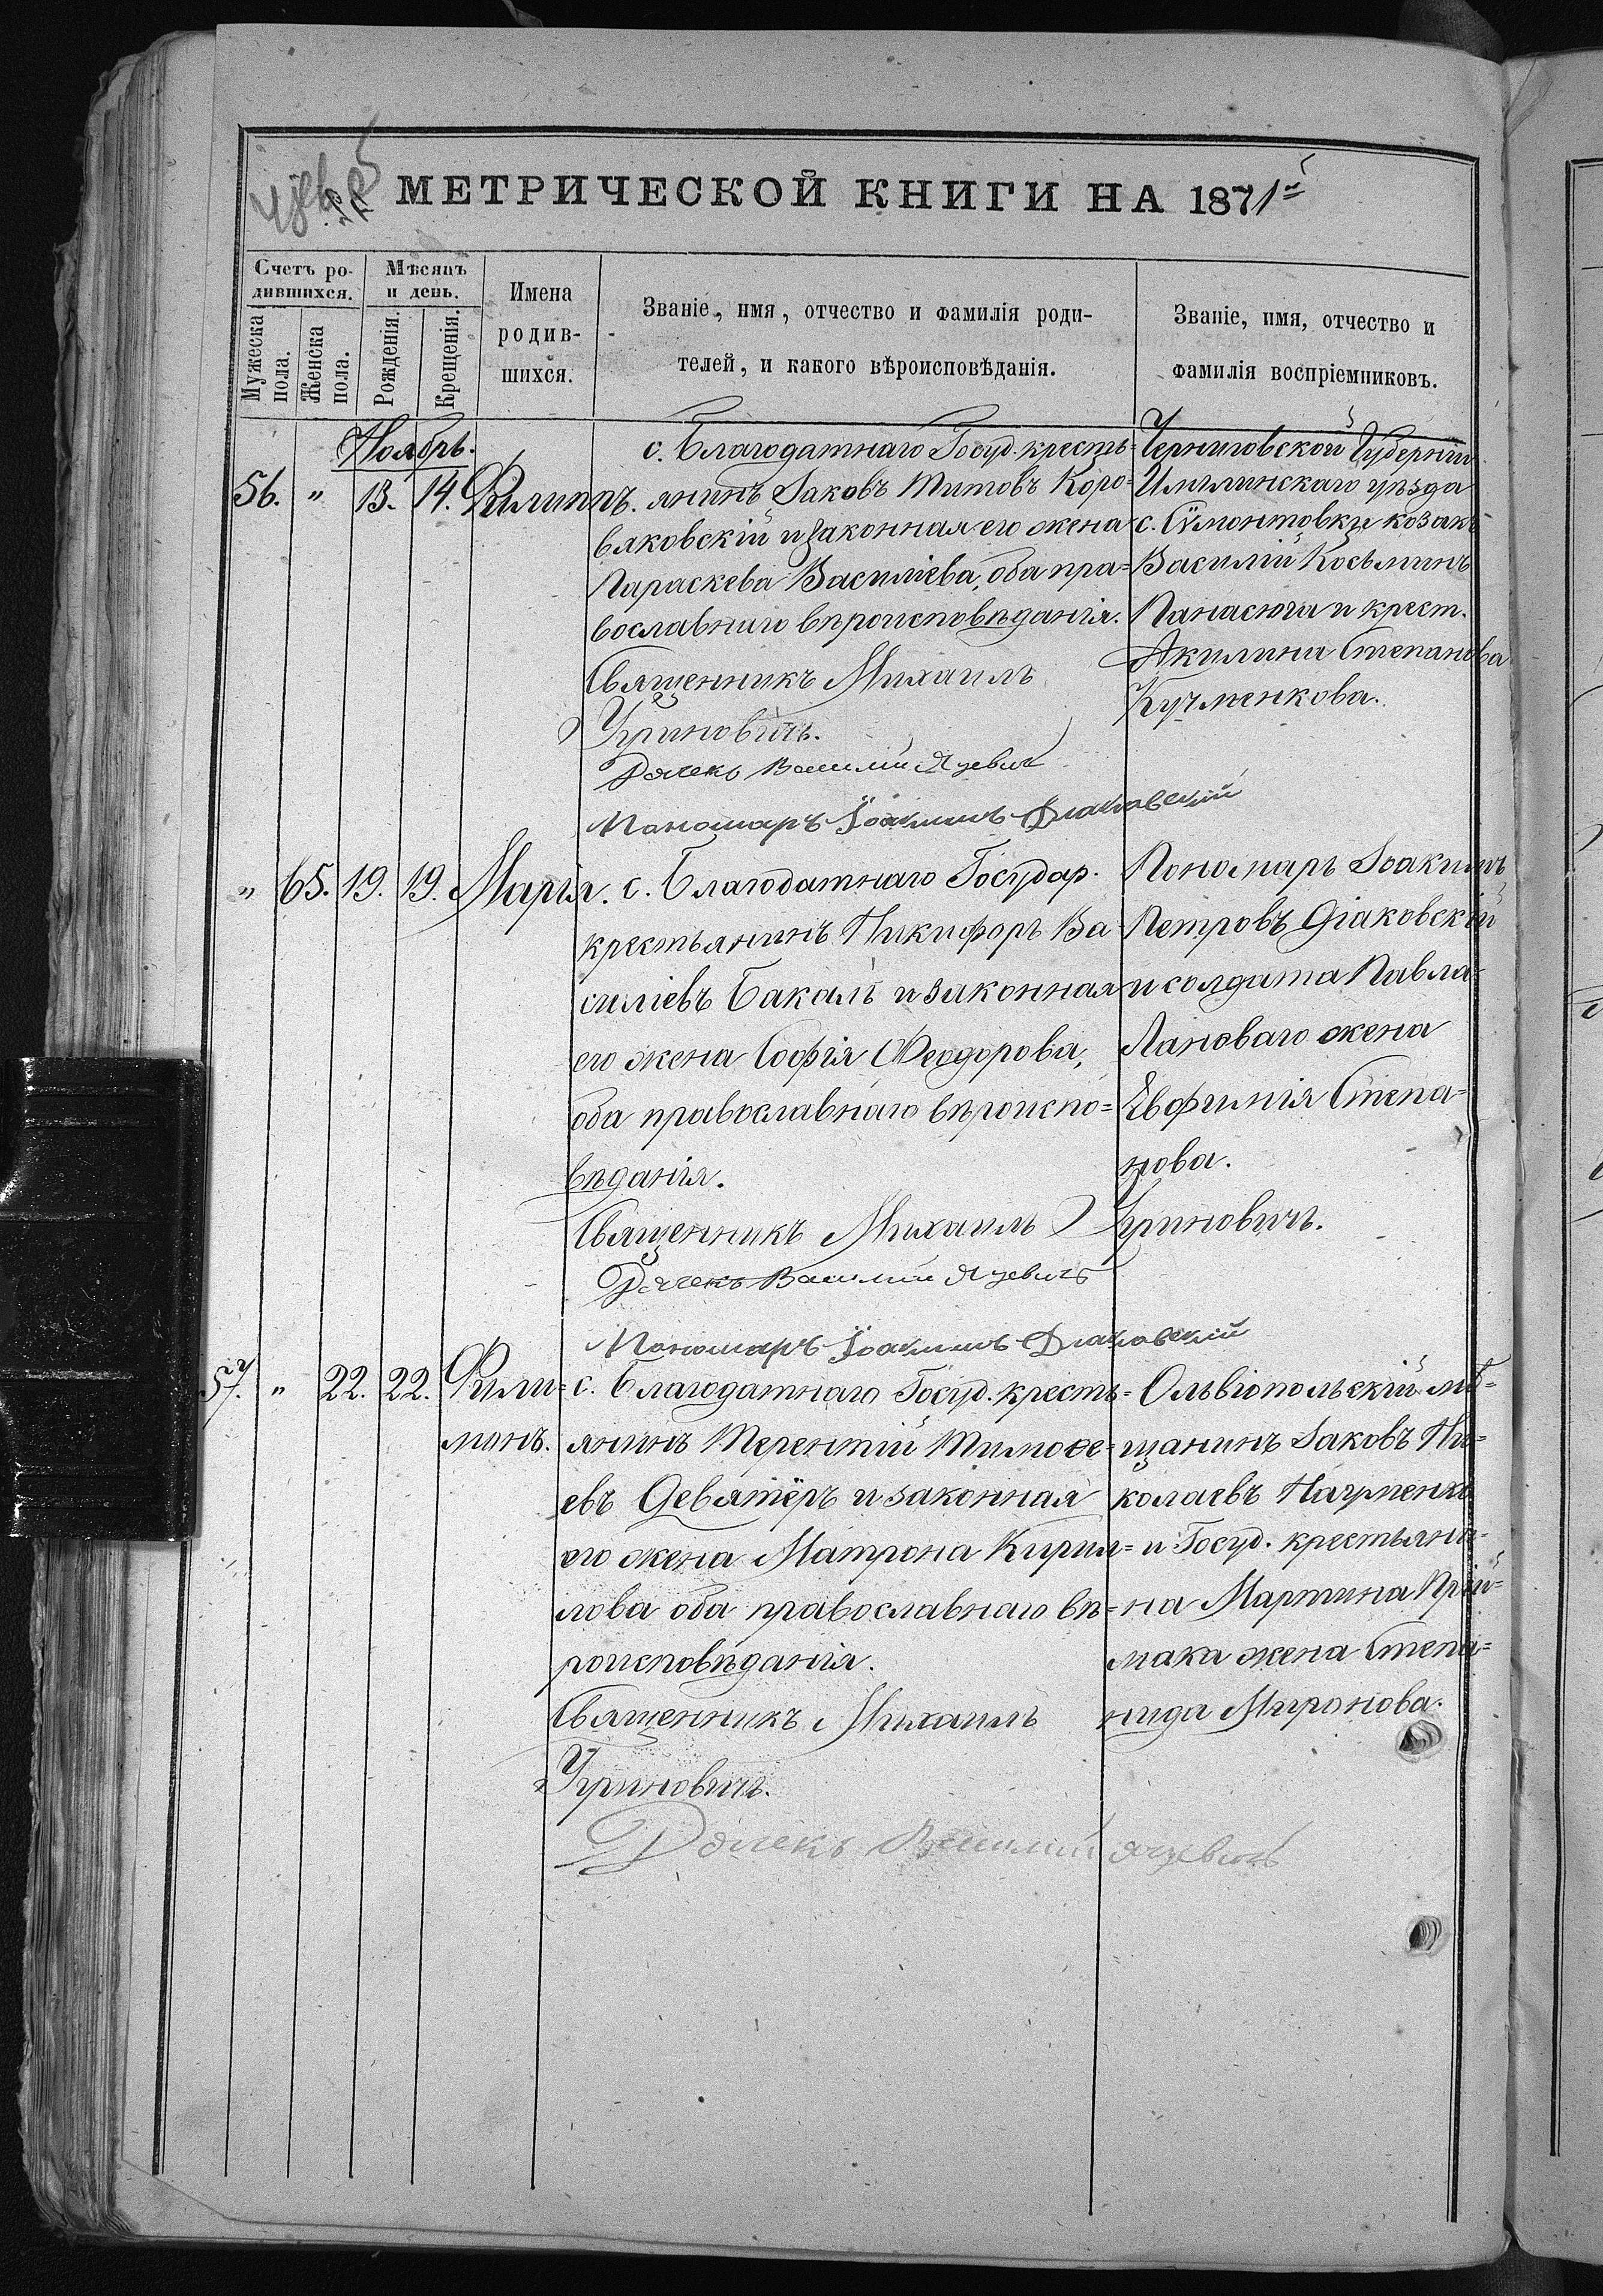 МЕТРИЧЕСКОЙ КНИГИ НА 1871й
Счетъ ро-
дившихся.
Мужеска
пола.
Женска
пола.
Мѣсяцъ
и день.
Рожденія.
Крещенія.
Имена
родив-
шихся.
Званіе, имя, отчество и фамилія роди-
телей, и какого вѣроисповѣданія.
Званіе, имя, отчество и
фамилія воспріемниковъ.
Ноябрь.
56. " 13. 14. Филиппъ.
с. Благодатнаго Госуд. кресть-
янинъ Іаковъ Титовъ Коро-
вяковскій и законная его жена
Параскева Василіева, оба пра-
вославнаго вѣроисповѣданія.
Священникъ Михаилъ
Угриновичъ.
Дячекъ Василій Яцевичъ
Пономаръ Іоакимъ Діаковскій
Черниговской Губерніи
уѣзда
с. козакъ
Василій Косьминъ
Панасюга и крест.
Акилина Степанова
Кучменкова.
" 65. 19. 19. Марія.
с. Благодатнаго Государ.
крестьянинъ Никифоръ Ва-
силіевъ Бакалъ и законная
его жена Софія Феодорова,
оба православнаго вѣроиспо=
вѣданія.
Священникъ Михаилъ Угриновичъ.
Дячекъ Василій Яцевичъ
Пономаръ Іоакимъ Діаковскій
Пономаръ Іоакимъ
Петровъ Діаковскій
и солдата Павла
Лановаго жена
Евфимія Степа=
нова.
57. " 22. 22. Фили=
монъ.
с. Благодатнаго Госуд. кресть=
янинъ Терентій Тимоѳе=
евъ Девятёръ и законная
его жена Матрона Кирил=
лова оба православнаго вѣ=
роисповѣданія.
Священникъ Михаилъ
Угриновичъ.
Дячекъ Василій Яцевичъ
Ольвіопольскій мѣ=
щанинъ Іаковъ Ни=
колаевъ
и Госуд. крестьяни=
на Мартина Прій=
мака жена Степа=
нида Миронова.